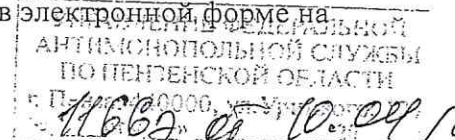 в электронной форме на
УПРАВЛЕНИЕ ФЕДЕРАЛЬНОЙ
АНТИМОНОПОЛЬНОЙ СЛУЖБЫ
ПО ПЕНЗЕНСКОЙ ОБЛАСТИ
г. Пенза, 440000, ул. Ур
11662 от 10.04